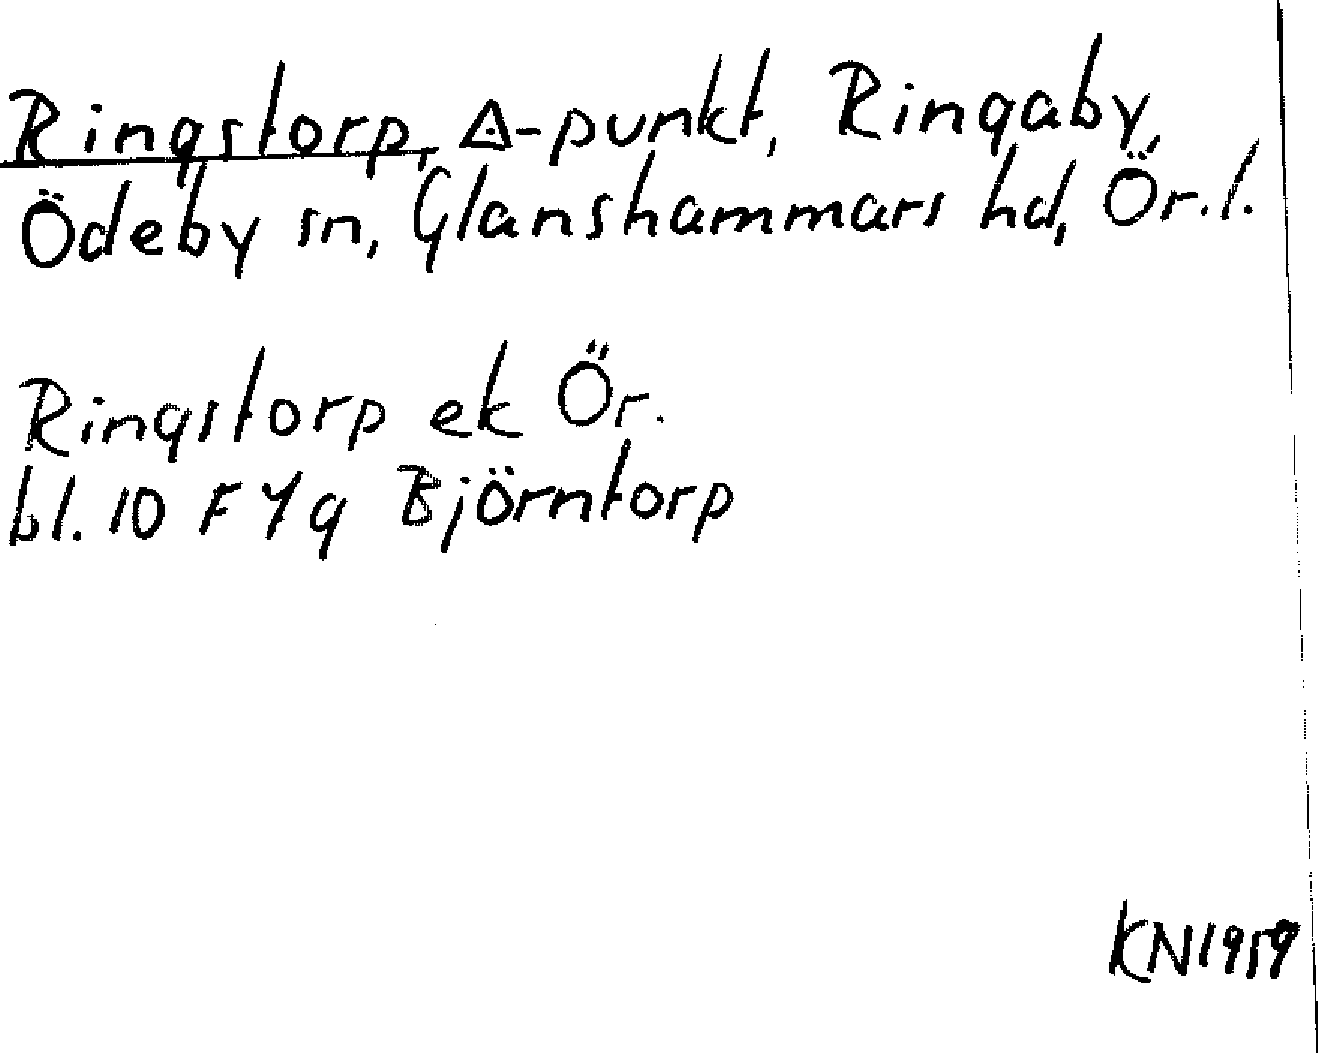 Ringstorp, ◬-punkt, Ringaby,
Ödeby sn, Glanshammars hd, Ör. l.
Ringstorp ek Ör.
bl. 10 F 7g Björntorp
KN1959